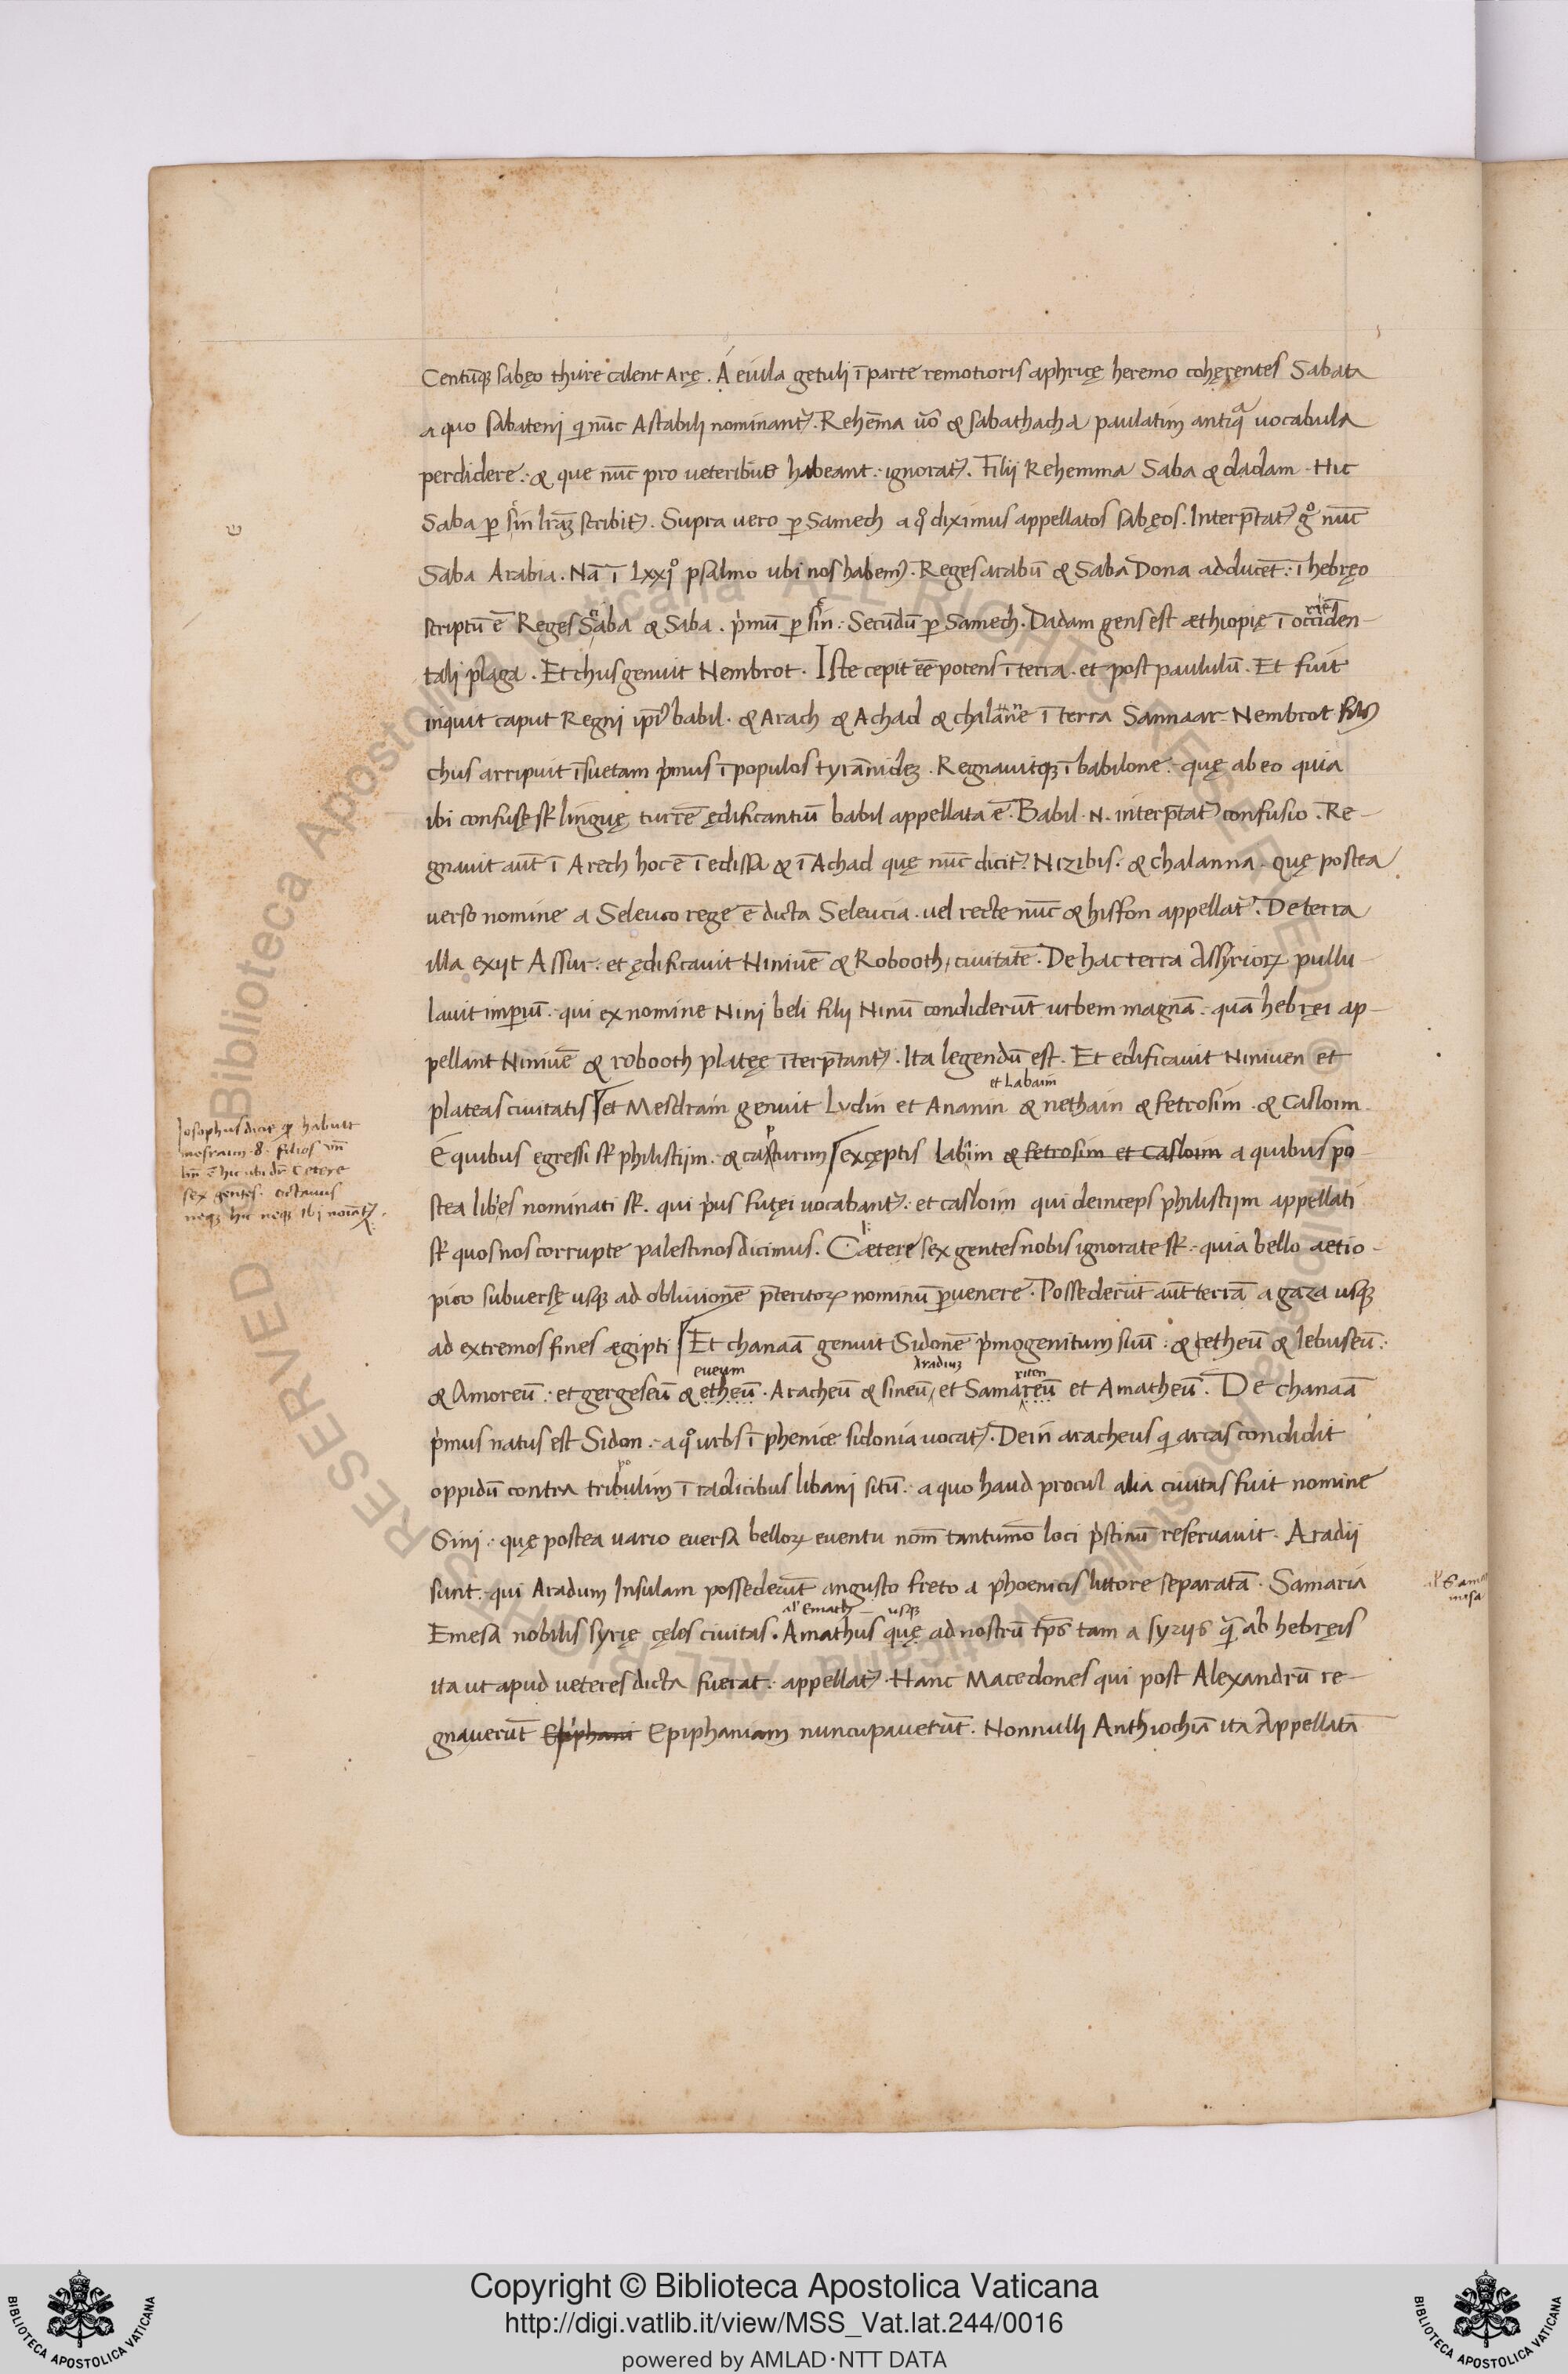 Centūqȝ sabęo thure calent Arę. A euila getuli ī parte remotioris aphricę heremo cohęrentes Sabata
a quo sabateni qi nūc Astabili nominant᷑. Rehēma ūo & sabathacha paulatim antiqa vocabula
perdidere: & que nūc pro veteribus habeant: ignorat᷑. Filij Rehemma Saba & dadam. Hic
Saba ꝑ sin lrāȝ scribit᷑. Supra vero ꝑ Samech a qo diximus appellatos sabęos. Interp̄tat᷑ go nūc
Saba Arabia. Nā ī Lxxjo psalmo ubi nos habem᷑. Reges arabū & Saba Dona adducēt: ī hebręo
scriptū ē Reges Saba & Saba. pimū ꝑ sin: Secūdū ꝑ Samech. Dadam gens est æthiopię ī occiden-
tali plaga. Et chus genuit Nembrot. Iste cepit eē potens ī terra. et post paululū. Et fuit
inquit caput Regni ipi᷑ babil. & Arach & Achad & chalanne ī terra Sannaar. Nembrot fili᷑
chus arripuit īsuetam pimus ī populos tyrānideȝ. Regnavitqȝ ī babilone: quę ab eo quia
ibi confusę st linguę turrē ędificantiū babil appellata ē. Babil .N. interp̄tat᷑ confusio. Re-
gnavit aūt ī Arech hoc ē ī edissa & ī Achad quę nūc dicit᷑. Nizibis. & chalanna. quę postea
verso nomine a Seleuco rege ē dicta Seleucia. vel recte nūc & hissfon appellat᷑. De terra
illa exijt Assur: et ędificavit Ninivē & Robooth, civitatē. De hac terra Assyrioꝝ pullu-
lavit imꝑiū: qui ex nomine Nini beli filij Ninū condiderūt urbem magnā: quā hebręi ap-
pellant Ninivē & robooth platęę īterp̄tant᷑. Ita legendū est. Et edificavit Niniven et
et Labaim
plateas civitatis et Mesdraim genuit Lvdin et Ananin & nethain & fetrosim. & Casloim.
E quibus egressi st philistijm. & capturim exceptis Labim & fetrosim et Casloim a quibus po-
stea libies nominati st. qui pius futęi vocabant᷑: et casloim qui deinceps philistijm appellati
st quos nos corrupte palestinos dicimus. Cætere sex gentes nobis ignorate st: quia bello aetio-
pico subversę usqȝ ad oblivionē p̄teritoꝝ nominū ꝑvenere. Possederūt aūt terrā a gaza usqȝ
ad extremos fines ægipti Et chanaā genuit Sidonē pimogenitum suū: & cetheū & Iebuseū:
eveum Aradiuȝ
& Amoreū: et gergeseū & etheū. Aracheū & sineū, et Samareū et Amatheū. De chanaā
pimus natus est Sidon: a qo urbs ī phenice sidonia vocat᷑. Dein aracheus qi arcas condidit
po
oppidū contra tribulim ī radicibus libani sitū: a quo haud procul alia civitas fuit nomine
Sini: quę postea vario eversa belloꝝ eventu nom̄ tantumō loci pistinū reservavit. Aradii
sunt: qui Aradum Insulam possederūt angusto freto a phoenicis littore separatā. Samaria
al' Emath usqȝ
Emesa nobilis syrię cęles civitas. Amathus quę ad nostrū tp̄s tam a syriis qa ab hebręis
ita ut apud veteres dicta fuerat: appellat᷑. Hanc Macedones qui post Alexandrū re-
gnaverūt Epiphani Epiphaniam nuncupaverūt. Nonnulli Anthiochiā ita Appellatā
Iosophus dicit habuit
mesraim .8. filios
hic ubi dr̄ Cetere
sex gentes. octavus
neqȝ hic neqȝ ibi noīat᷑.
Copyright © Biblioteca Apostolica Vaticana
http://digi.vatlib.it/view/MSS_Vat.lat.244/0016
powered by AMLAD·NTT DATA
BIBLIOTECA APOSTOLICA VATICANA
BIBLIOTECA APOSTOLICA VATICANA